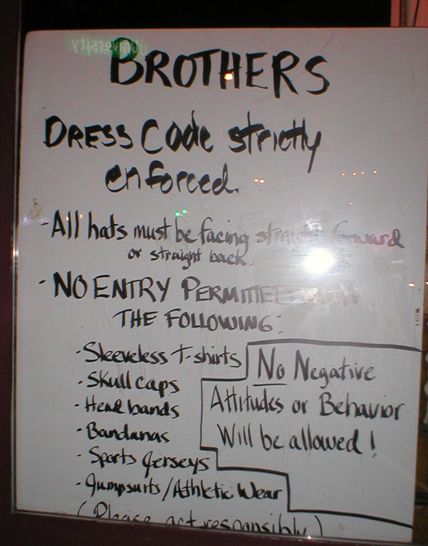 University
BROTHERS
DRESS Code strictly
enforced.
- All hats must be facing straight forward
or straight back.
- NO ENTRY PERMITTED WITH
THE FOLLOWING:
- Sleeveless T-shirts
- Skull caps
- Head bands
- Bandanas
- Sports Jerseys
- Jumpsuits/Athletic Wear
No Negative
Attitudes or Behavior
Will be allowed!
(Please act responsibly)